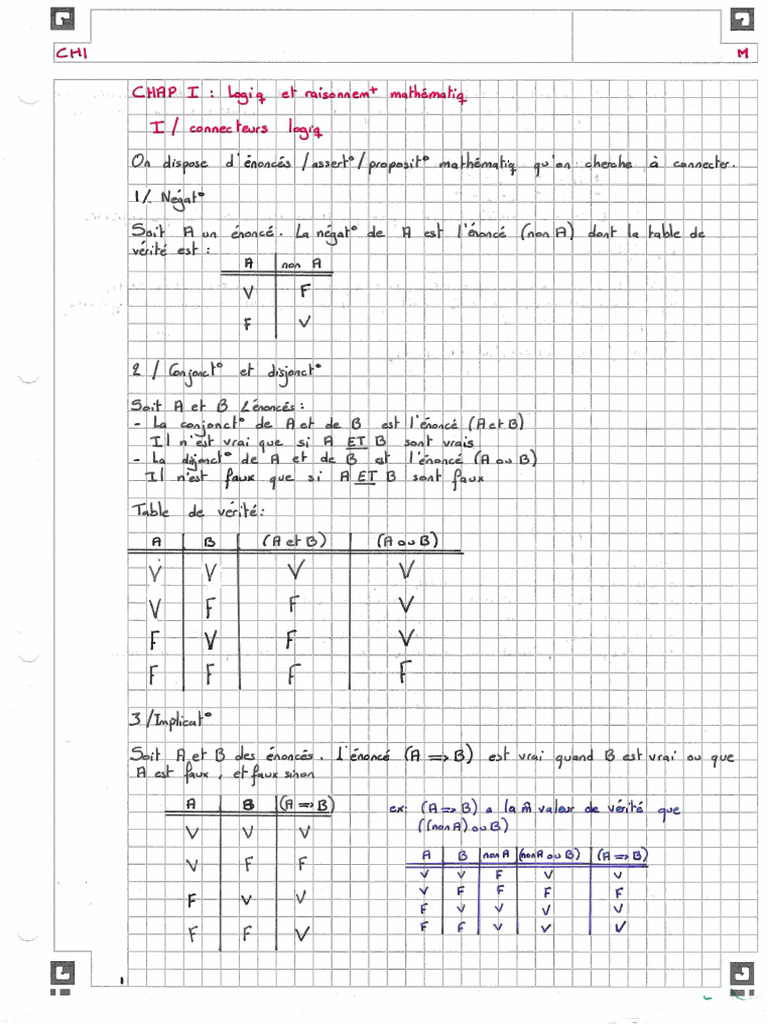 CH1 M
CHAP I : logiq et raisonnemt mathématiq
I/ connecteurs logiq
On dispose d'énoncés /assert°/proposit° mathématiq qu'on cherche à connecter.
1/ Négat°
Soit A un énoncé. La négat° de A est l'énoncé (non A) dont la table de
vérité est :
A non A
V F
F V
2 / Conjonct° et disjonct°
Soit A et B 2 énoncés :
- La conjonct° de A et de B est l'énoncé (A et B)
Il n'est vrai que si A ET B sont vrais
- La dijonct° de A et de B est l'énoncé (A ou B)
Il n'est faux que si A ET B sont faux
Table de vérité :
A B (A et B) (A ou B)
V V V V
V F F V
F V F V
F F F F
3 /Implicat°
Soit A et B des énoncés. L'énoncé (A => B) est vrai quand B est vrai ou que
A est faux, et faux sinon
A B (A => B)
V V V
V F F
F V V
F F V
ex: (A => B) a la m̂ valeur de vérité que
((non A) ou B)
A B non A (non A ou B) (A => B)
V V F V V
V F F F F
F V V V V
F F V V V
1